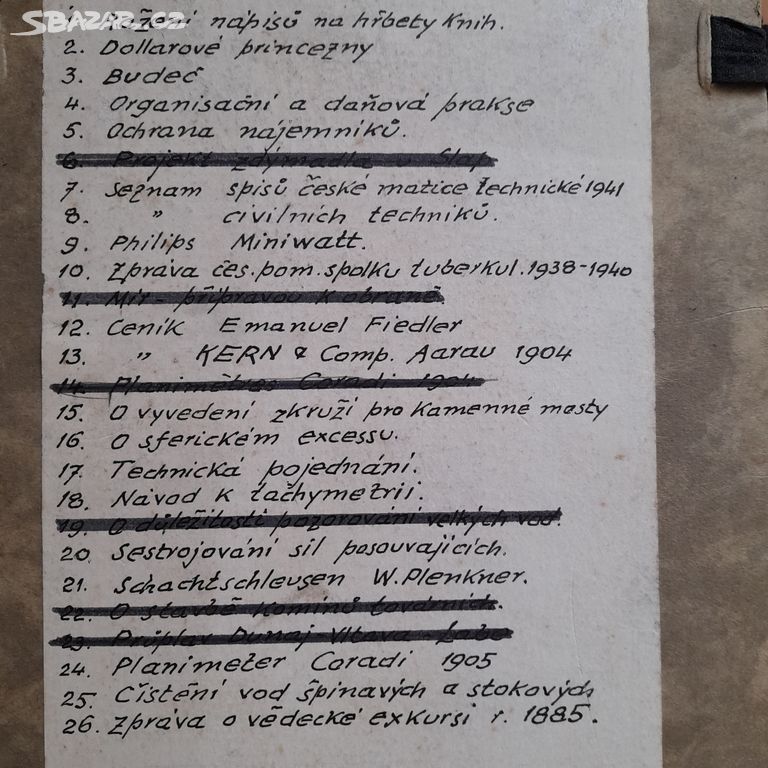 SBAZAR.CZ
1. Ražení nápisů na hřbety knih.
2. Dollarové princezny
3. Budeč
4. Organisační a daňová prakse
5. Ochrana nájemníků.
6. Projekt zdýmadla u Slap
7. Seznam spisů české matice technické 1941
8. " civilních techniků.
9. Philips Miniwatt.
10. Zpráva čes. pom. spolku tuberkul. 1938-1940
11. Mír - přípravou k obraně.
12. Ceník Emanuel Fiedler
13. " KERN & Comp. Aarau 1904
14. Planimètres Coradi 1904
15. O vyvedení zkruží pro kamenné mosty
16. O sferickém excessu.
17. Technická pojednání.
18. Návod k tachymetrii.
19. O důležitosti pozorování velkých vod.
20. Sestrojování sil posouvajících.
21. Schachtschleusen W. Plenkner.
22. O stavbě komínů továrních.
23. Průplav Dunaj-Vltava-Labe
24. Planimeter Coradi 1905
25. Čistění vod špinavých a stokových
26. Zpráva o vědecké exkursi r. 1885.